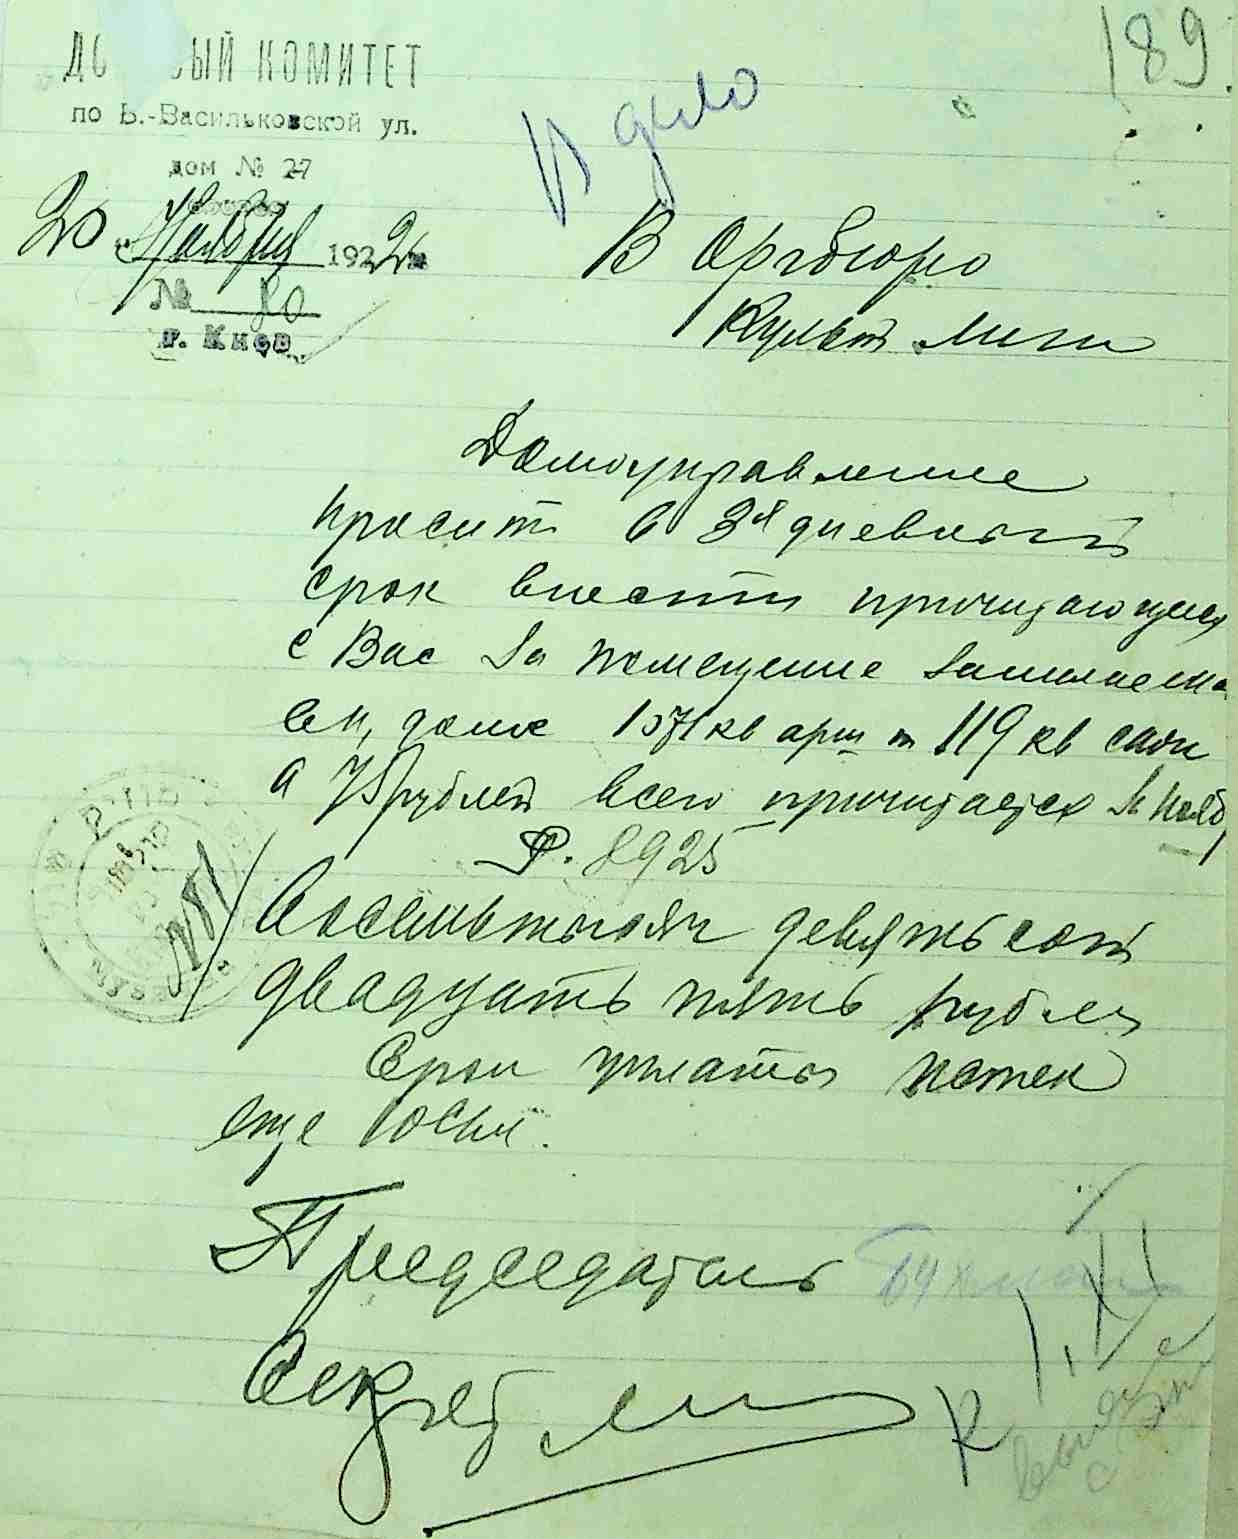 189
ДО ВЫЙ КОМИТЕТ
по Б.-Васильковской ул.
дом № 27
В дело
20 Ноября 1922
№ 80
г. Киев
В Оргбюро
Культ Лиги
Домоуправление
просит в 3х дневный
срок внести причитающиеся
с Вас за помещение занимаемое
в н, доме 1071 кв арш 119 кв саж
а 75 рублей всего причитается за Нояб
Р. 8925
Восемьтысяч девятьсот
двадцать пять рублей
Срок уплаты истек
еще
Председатель
Секрет